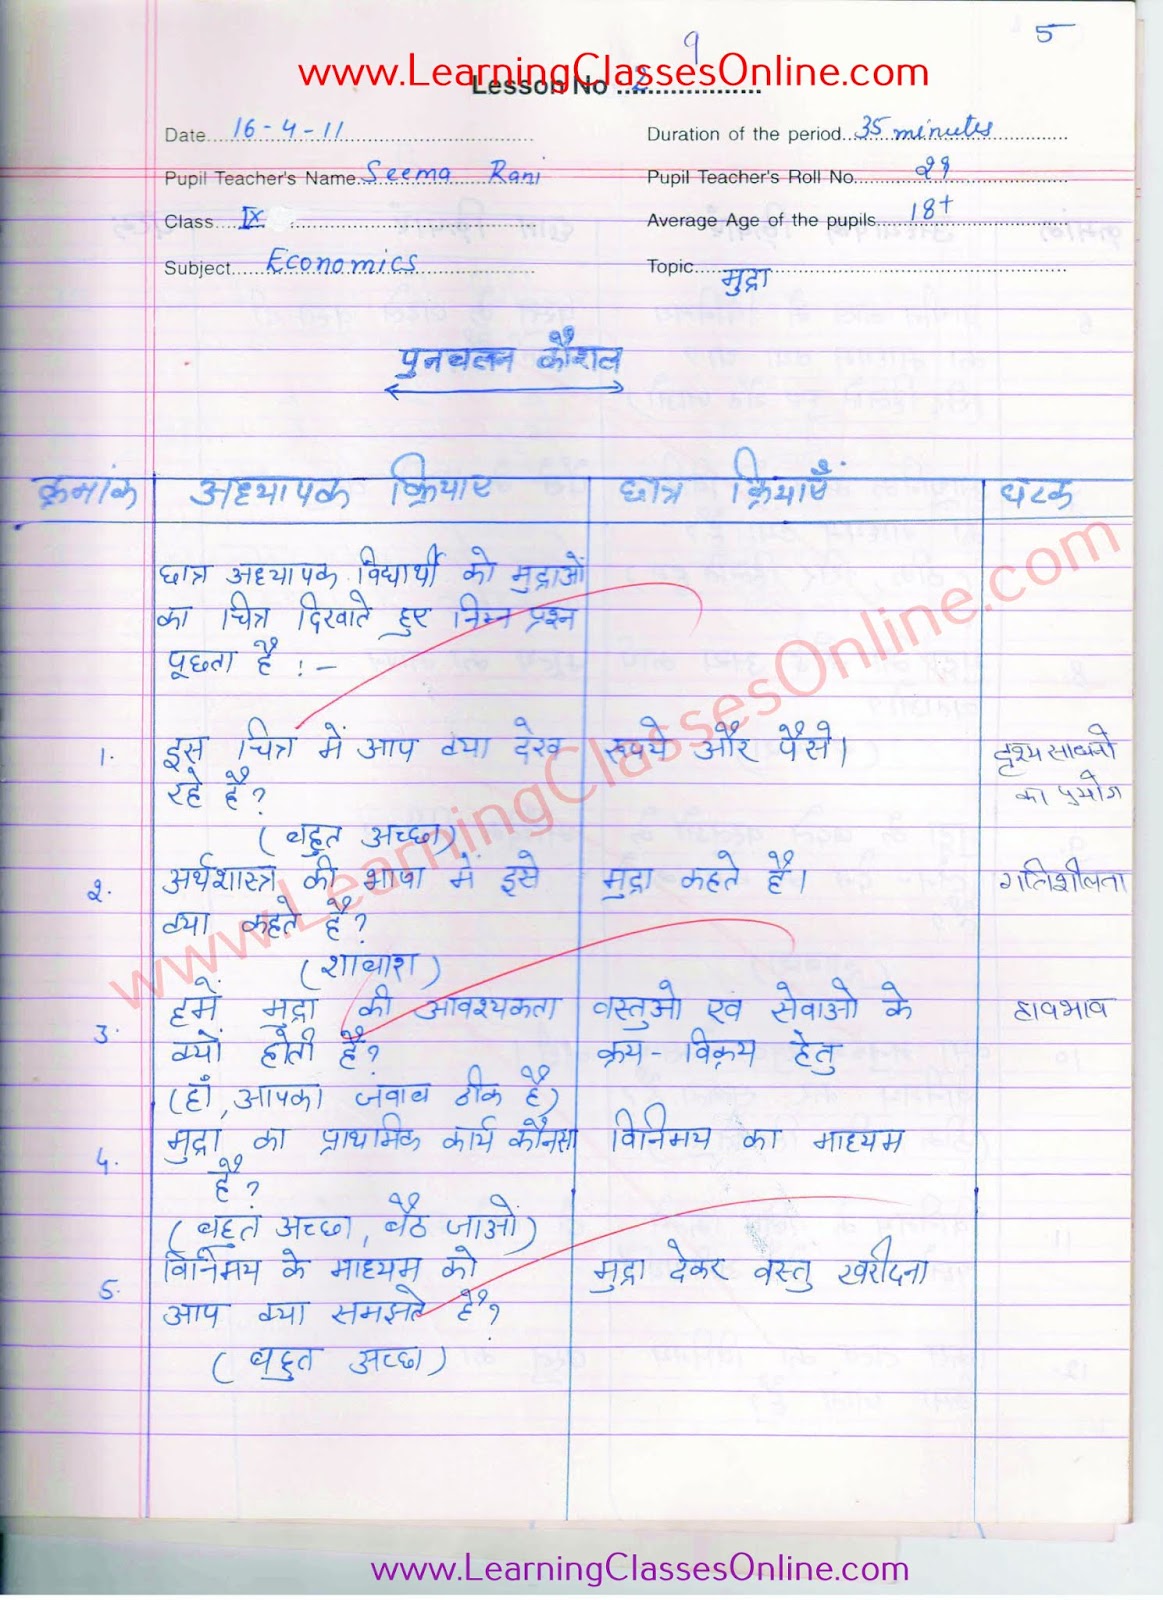 5
9
www.LearningClassesOnline.com
Lesson No 2
Date 16-4-11 Duration of the period 35 minutes
Pupil Teacher's Name Seema Rani Pupil Teacher's Roll No. 29
Class IX Average Age of the pupils 18+
Subject Economics Topic मुद्रा
पुनबलन कौशल
क्रमांक अध्यापक क्रियाए छात्र क्रियाएँ घटक
छात्र अध्यापक विद्यार्थी को मुद्राओं
का चित्र दिखाते हुए निम्न प्रश्न
पूछता है :-
1. इस चित्र में आप क्या देख रूपये और पैसे। दृश्य साधनो
रहे है? का प्रयोग
(बहुत अच्छा)
2. अर्थशास्त्र की भाषा में इसे मुद्रा कहते है। गतिशीलता
क्या कहते है?
(शाबाश)
3. हमें मुद्रा की आवश्यकता वस्तुओ एवं सेवाओ के हावभाव
क्यों होती है? क्रय-विक्रय हेतु
(हाँ, आपका जवाब ठीक है)
4. मुद्रा का प्राथमिक कार्य कौनसा विनिमय का माध्यम
है?
(बहुत अच्छा, बैठ जाओ)
5. विनिमय के माध्यम को मुद्रा देकर वस्तु खरीदना
आप क्या समझते है?
(बहुत अच्छा)
www.LearningClassesOnline.com
www.LearningClassesOnline.com